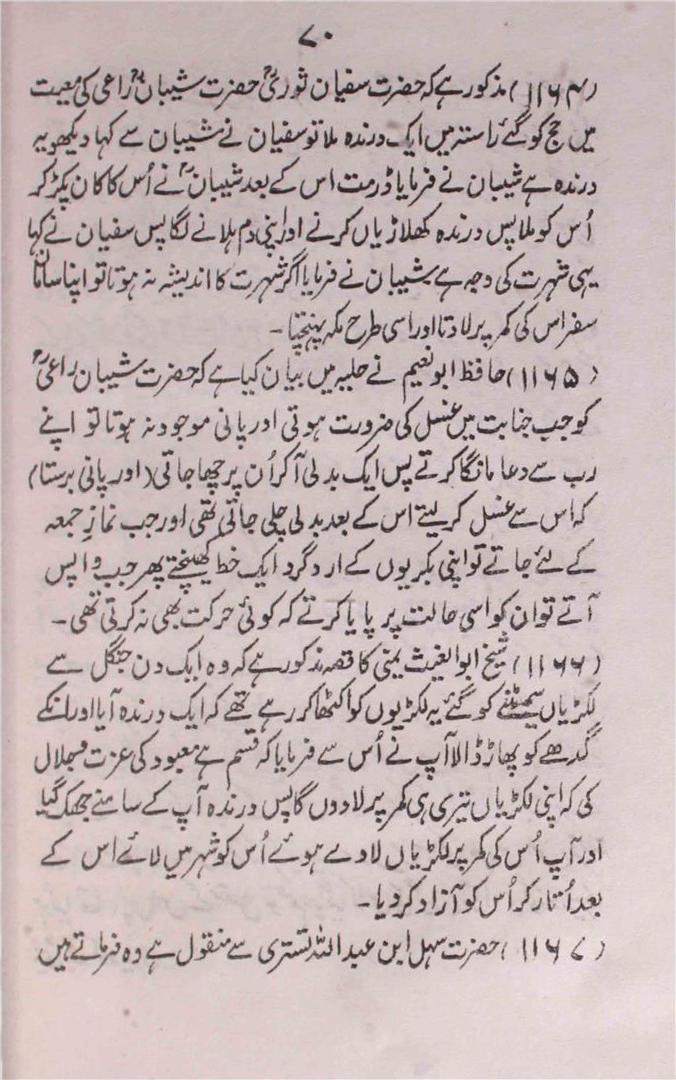 ۷۰
(۱۱۶۴) مذکور ہے کہ حضرت سفیان ثوریؒ حضرت شیبانؒ راعی کی معیت
میں حج کو گئے راستہ میں ایک درندہ ملا تو سفیان نے شیبان سے کہا دیکھو یہ
درندہ ہے شیبان نے فرمایا ڈرمت اس کے بعد شیبانؒ نے اُس کا کان پکڑ کر
اُس کو ملا پس درندہ کھلاڑیاں کرنے اور اپنی دم ہلانے لگا پس سفیان نے کہا
یہی شہرت کی وجہ ہے شیبان نے فرمایا اگر شہرت کا اندیشہ نہ ہوتا تو اپنا سامان
سفر اس کی کمر پر لادتا اور اسی طرح مکہ پہنچتا ۔
(۱۱۶۵) حافظ ابو نعیم نے حلیہ میں بیان کیا ہے کہ حضرت شیبان راعیؒ
کو جب جنابت میں غسل کی ضرورت ہوتی اور پانی موجود نہ ہوتا تو اپنے
رب سے دعا مانگا کرتے پس ایک بدلی آکر اُن پر چھا جاتی (اور پانی برستا)
کہ اس سے غسل کر لیتے اس کے بعد بدلی چلی جاتی تھی اور جب نمازِ جمعہ
کے لئے جاتے تو اپنی بکریوں کے ارد گرد ایک خط کھینچتے پھر جب واپس
آتے تو ان کو اسی حالت پر پایا کرتے کہ کوئی حرکت بھی نہ کرتی تھی ۔
(۱۱۶۶) شیخ ابو الغیث یمنی کا قصہ مذکور ہے کہ وہ ایک دن جنگل سے
لکڑیاں سمیٹنے کو گئے یہ لکڑیوں کو اکٹھا کر رہے تھے کہ ایک درندہ آیا اور انکے
گدھے کو پھاڑ ڈالا آپ نے اُس سے فرمایا کہ قسم ہے معبود کی عزت و جلال
کی کہ اپنی لکڑیاں تیری ہی کمر پر لادوں گا پس درندہ آپ کے سامنے جھک گیا
اور آپ اُس کی کمر پر لکڑیاں لادے ہوئے اُس کو شہر میں لائے اس کے
بعد اُتار کر اُس کو آزاد کر دیا ۔
(۱۱۶۷) حضرت سہل ابن عبد اللہ تستری سے منقول ہے وہ فرماتے ہیں